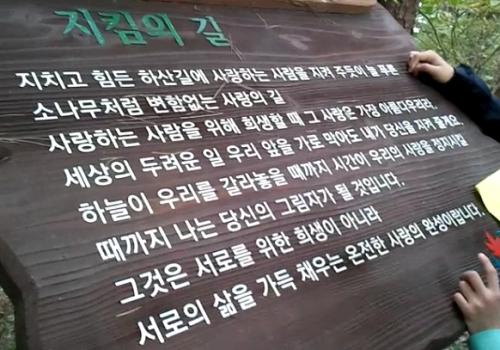 지킴의 길
지치고 힘든 하산길에 사랑하는 사람을 지켜 주듯이 늘 푸른
소나무처럼 변함없는 사랑의 길
사랑하는 사람을 위해 희생할 때 그 사랑은 가장 아름다우리라.
세상의 두려운 일 우리 앞을 가로 막아도 내가 당신을 지켜 줄게요
하늘이 우리를 갈라놓을 때까지 시간이 우리의 사랑을 정지시킬
때까지 나는 당신의 그림자가 될 것입니다.
그것은 서로를 위한 희생이 아니라
서로의 삶을 가득 채우는 온전한 사랑의 완성이랍니다.